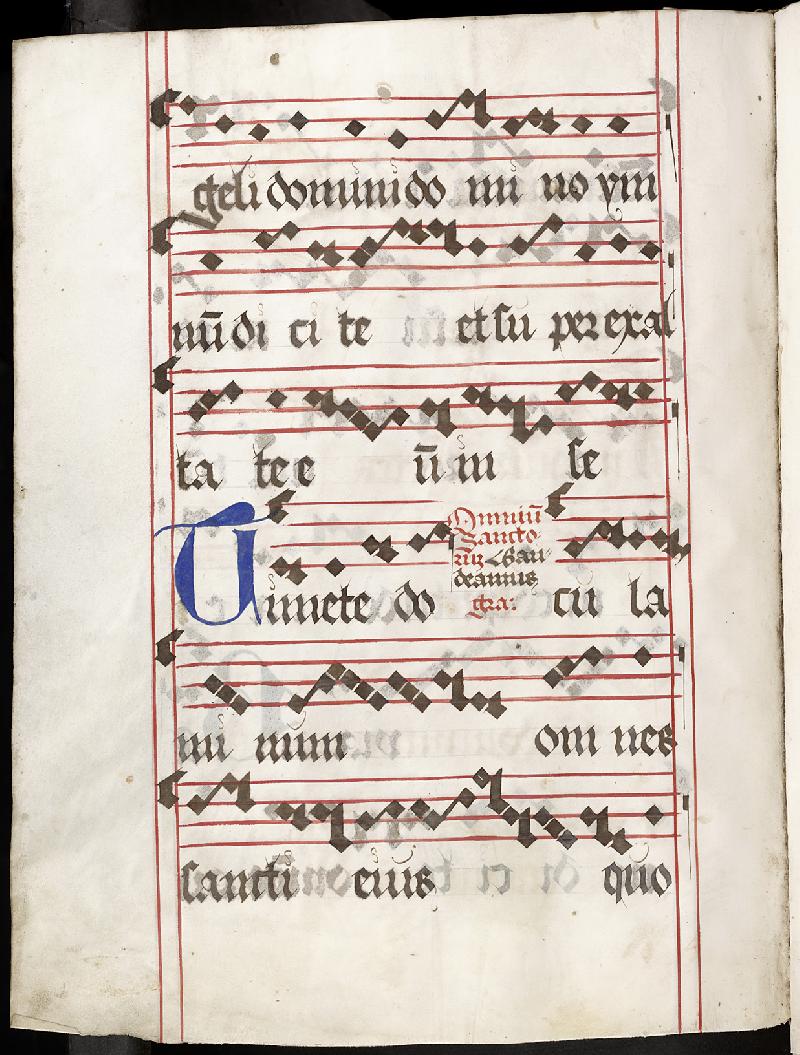 geli domini do mi no ym
nū di ci te et su per exal
ta te e ū in se
Omniū
Sancto
rū Gau
deamus
gra:
Timete do cū la
mi num om nes
sancti eius quo